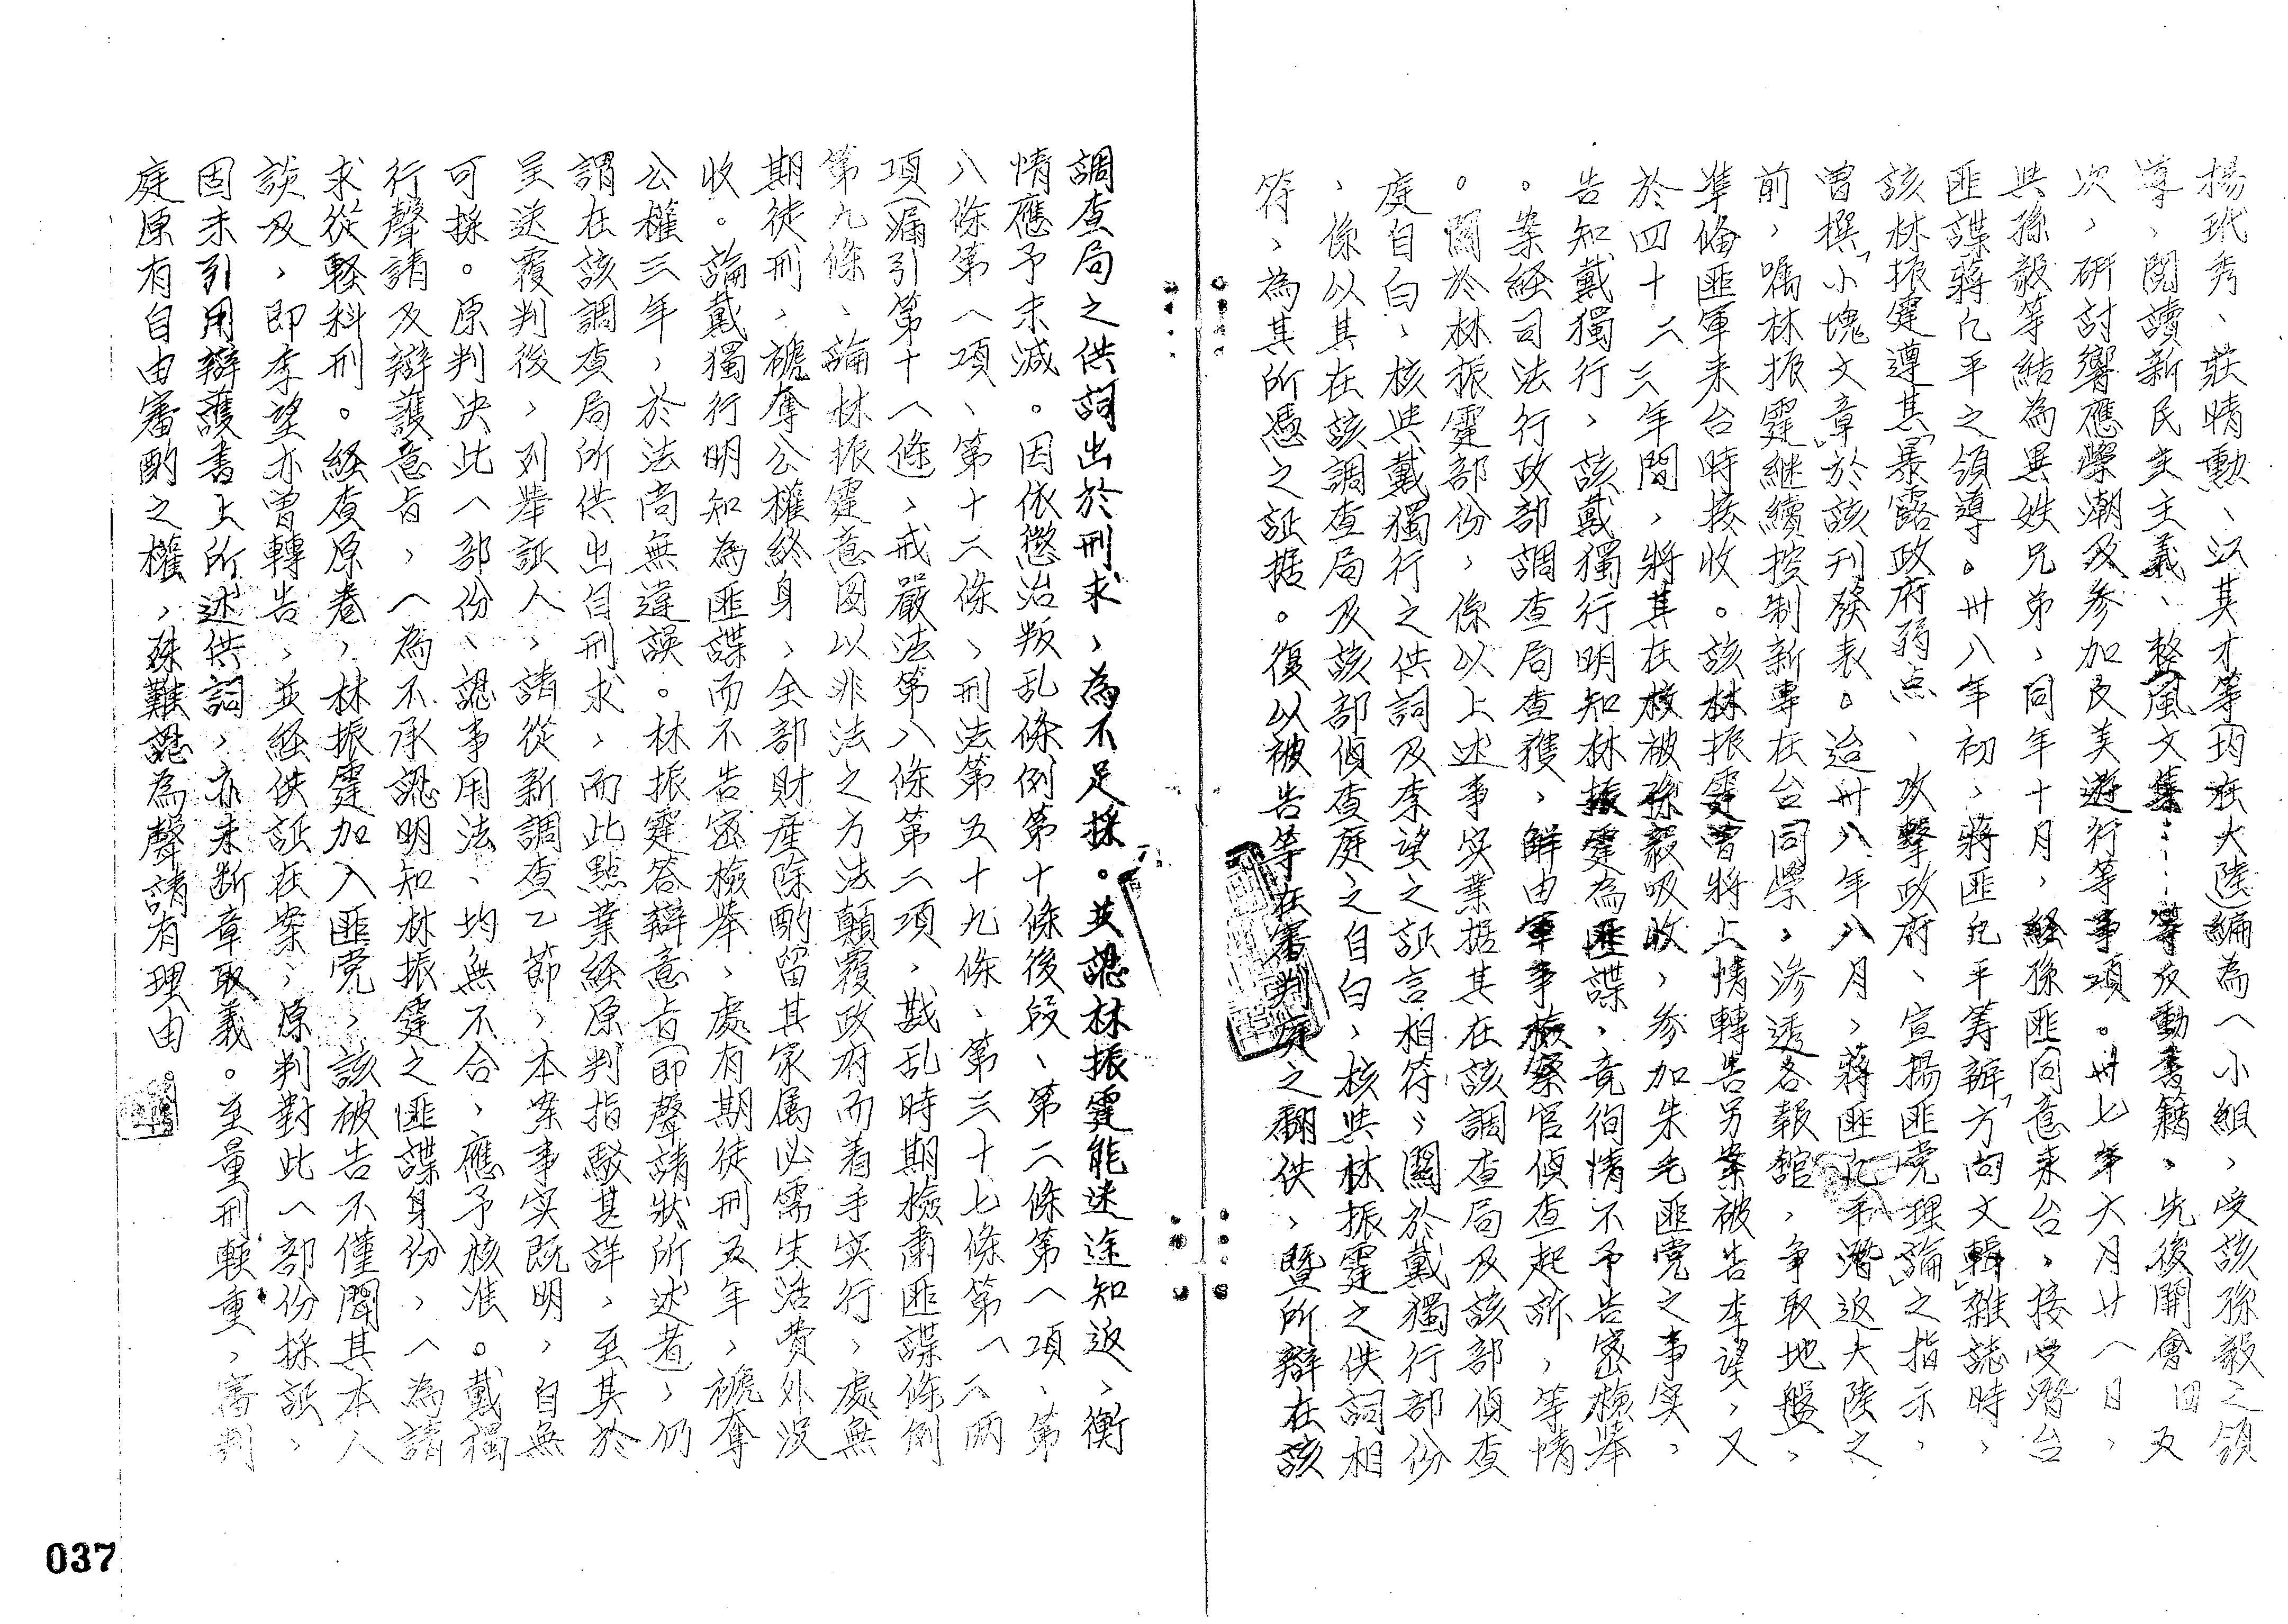 楊玳秀、莊晴勳、江其才等(均在大陸)編為一小組，受該孫毅之領
導、閱讀新民主主義、整風文集……等反動書籍、先後開會四五
次，研討響應學潮及參加反美遊行等事項。卅七年六月廿一日，
與孫毅等結為異姓兄弟，同年十月，經孫匪同意來台，接受潛台
匪諜蔣匕平之領導。卅八年初，蔣匪匕平籌辦「方向文輯」雜誌時，
該林振霆遵其「暴露政府弱点、攻擊政府、宣揚匪党理論」之指示，
曾撰「小塊文章」於該刊發表。迨卅八年八月，蔣匪匕平潛返大陸之
前，嘱林振霆継續控制新專在台同學，滲透各報館，争取地盤，
準俻匪軍来台時接收。該林振霆曾將上情轉告另案被告李望，又
於四十二三年間，將其在校被孫毅吸收，參加朱毛匪党之事实，
告知戴獨行，該戴獨行明知林振霆為匪諜，竟徇情不予告密檢舉
。案経司法行政部調查局查獲，解由軍事檢察官偵查起訴，等情
。關於林振霆部份，係以上述事实業据其在該調查局及該部偵查
庭自白、核與戴獨行之供詞及李望之証言相符；關於戴獨行部份
，係以其在該調查局及該部偵查庭之自白、核與林振霆之供詞相
符，為其所憑之証据。復以被告等在審判庭之翻供，暨所辯在該
調查局之供詞出於刑求，為不足採。並認林振霆能迷途知返，衡
情應予末減。因依懲治叛乱條例第十條後段、第二條第一項、第
八條第一項、第十二條，刑法第五十九條、第三十七條第一二兩
項(漏引第十一條)，戒嚴法第八條第二項，戡乱時期檢肅匪諜條例
第九條、論林振霆意圖以非法之方法顛覆政府而着手实行，處無
期徒刑，褫奪公權終身，全部財產除酌留其家属必需生活費外没
收。論戴獨行明知為匪諜而不告密檢舉，處有期徒刑五年，褫奪
公權三年，於法尚無違誤。林振霆答辯意旨(即聲請狀所述者)，仍
謂在該調查局所供出自刑求，而此點業経原判指駁甚詳，至其於
呈送覆判後，列舉証人，請從新調查乙節，本案事实既明，自無
可採。原判决此一部份、認事用法、均無不合，應予核准。戴獨
行聲請及辯護意旨，一為不承認明知林振霆之匪諜身份，一為請
求從輕科刑。経查原卷，林振霆加入匪党，該被告不僅聞其本人
談及，即李望亦曾轉告，並経供証在案，原判對此一部份採証，
固未引用辯護書上所述供詞，亦未断章取義。至量刑輕重，審判
庭原有自由審酌之權，殊難認為聲請有理由
037